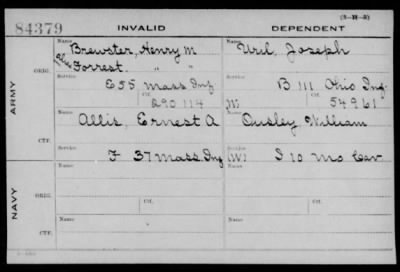 (3-M-5)
84379 INVALID DEPENDENT
ARMY
ORIG.
Name Brewster, Henry M
alias Forrest. " "
Service E 55 Mass Inf
Ctf. 290 114
Name Uril, Joseph
Service B 111 Ohio Inf.
(W) Ctf. 54961
CTF.
Name Allis, Ernest A
Service F 37 Mass. Inf
Name Ousley, William
Service (W) I 10 Mo Cav
NAVY
ORIG.
Name
Service Ctf.
Name
Service Ctf.
CTF.
Name
Service
Name
Service